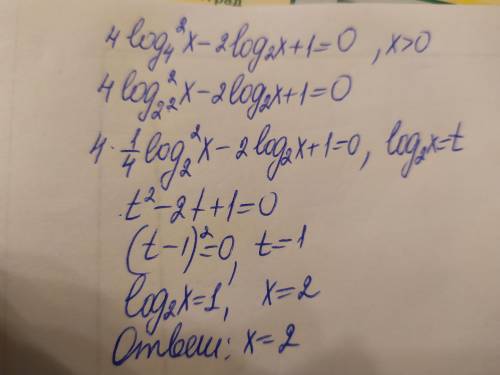 4log₄²x-2log₂x+1=0, x>0
4log²₂²x-2log₂x+1=0
4·1/4log₂²x-2log₂x+1=0, log₂x=t
t²-2t+1=0
(t-1)²=0, t=1
log₂x=1, x=2
Ответ: x=2